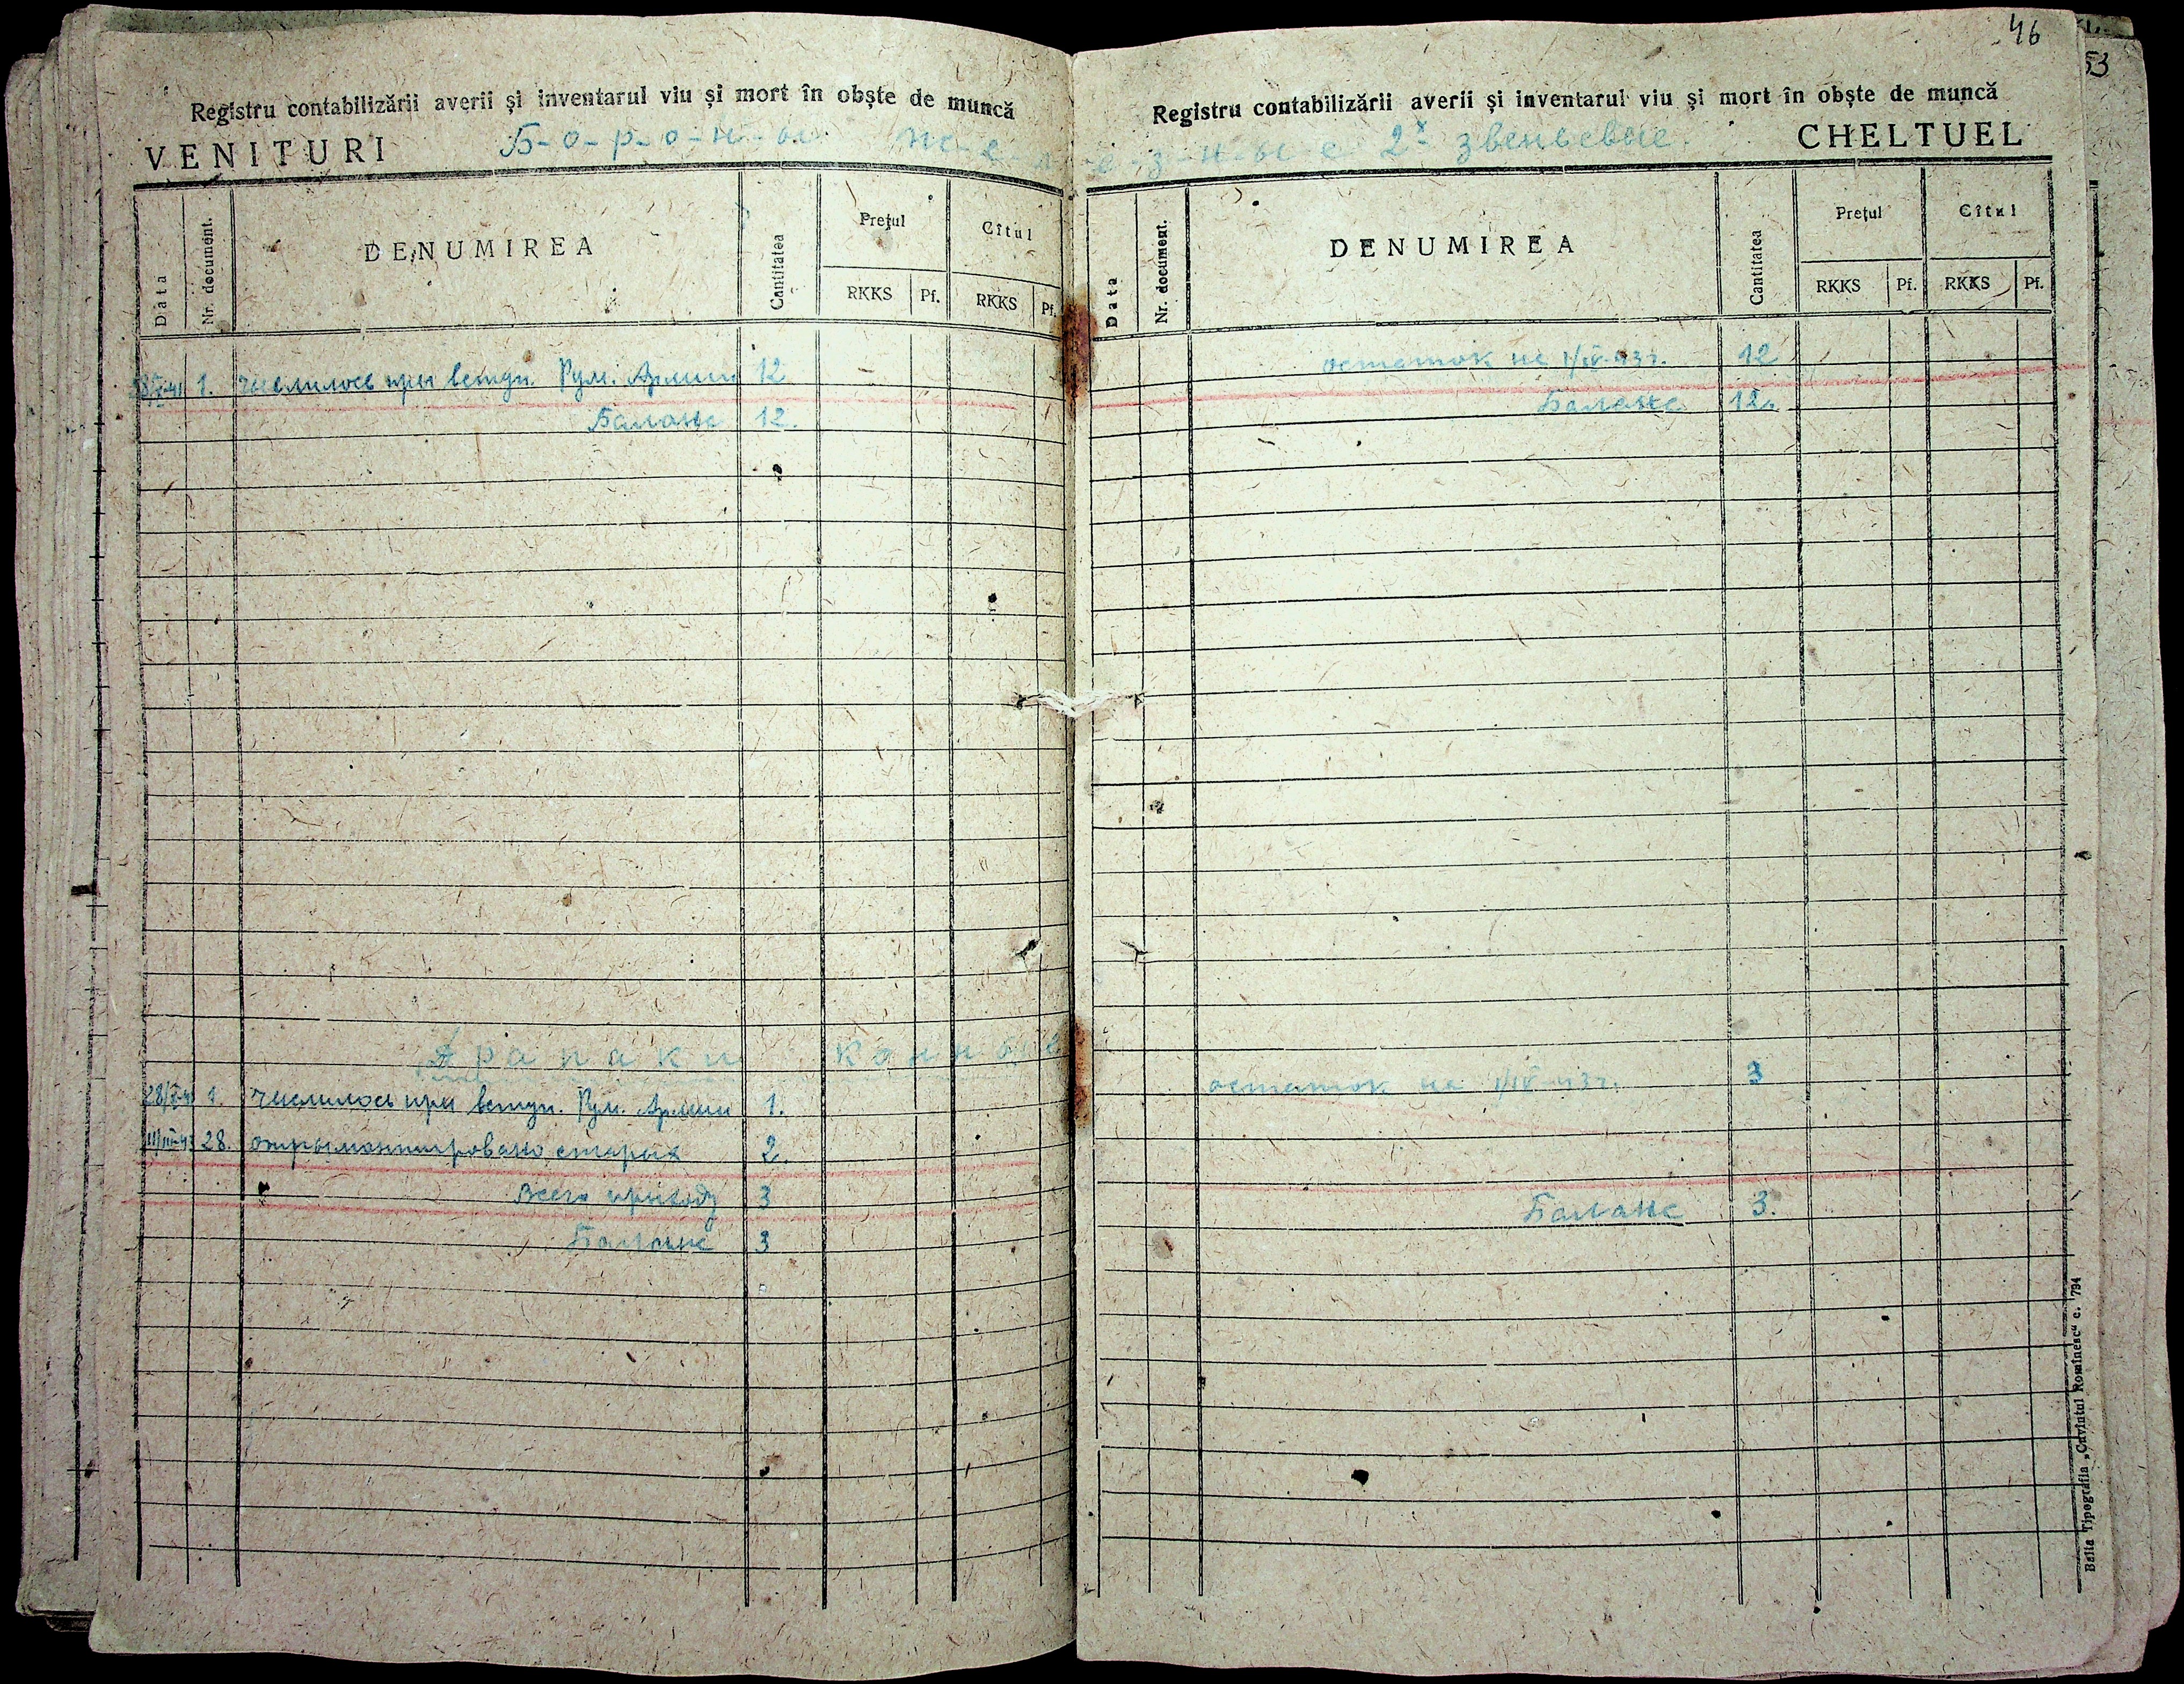 46
53
Registru contabilizării averii și inventarul viu și mort în obște de muncă
VENITURI
Б-о-р-о-н-ы ж-е-л-е-з-н-ы-е 2х звеньевые.
Data
Nr. document.
DENUMIREA
Cantitatea
Prețul
Cîtul
RKKS Pf. RKKS Pf.
1. числилось при вступ. Рум. Армии 12
Баланс 12.
Драпаки конные
1. числилось при вступ. Рум. Армии 1.
28. старых 2.
Всего приходу 3
Баланс 3
Registru contabilizării averii și inventarul viu și mort în obște de muncă
CHELTUEL
Data
Nr. document.
DENUMIREA
Cantitatea
Prețul
Cîtul
RKKS Pf. RKKS Pf.
остаток на 1/IV-43г. 12
Баланс 12.
остаток на 1/IV-43г. 3
Баланс 3.
Balta Tipografia „Cuvîntul Romînesc" c. 794